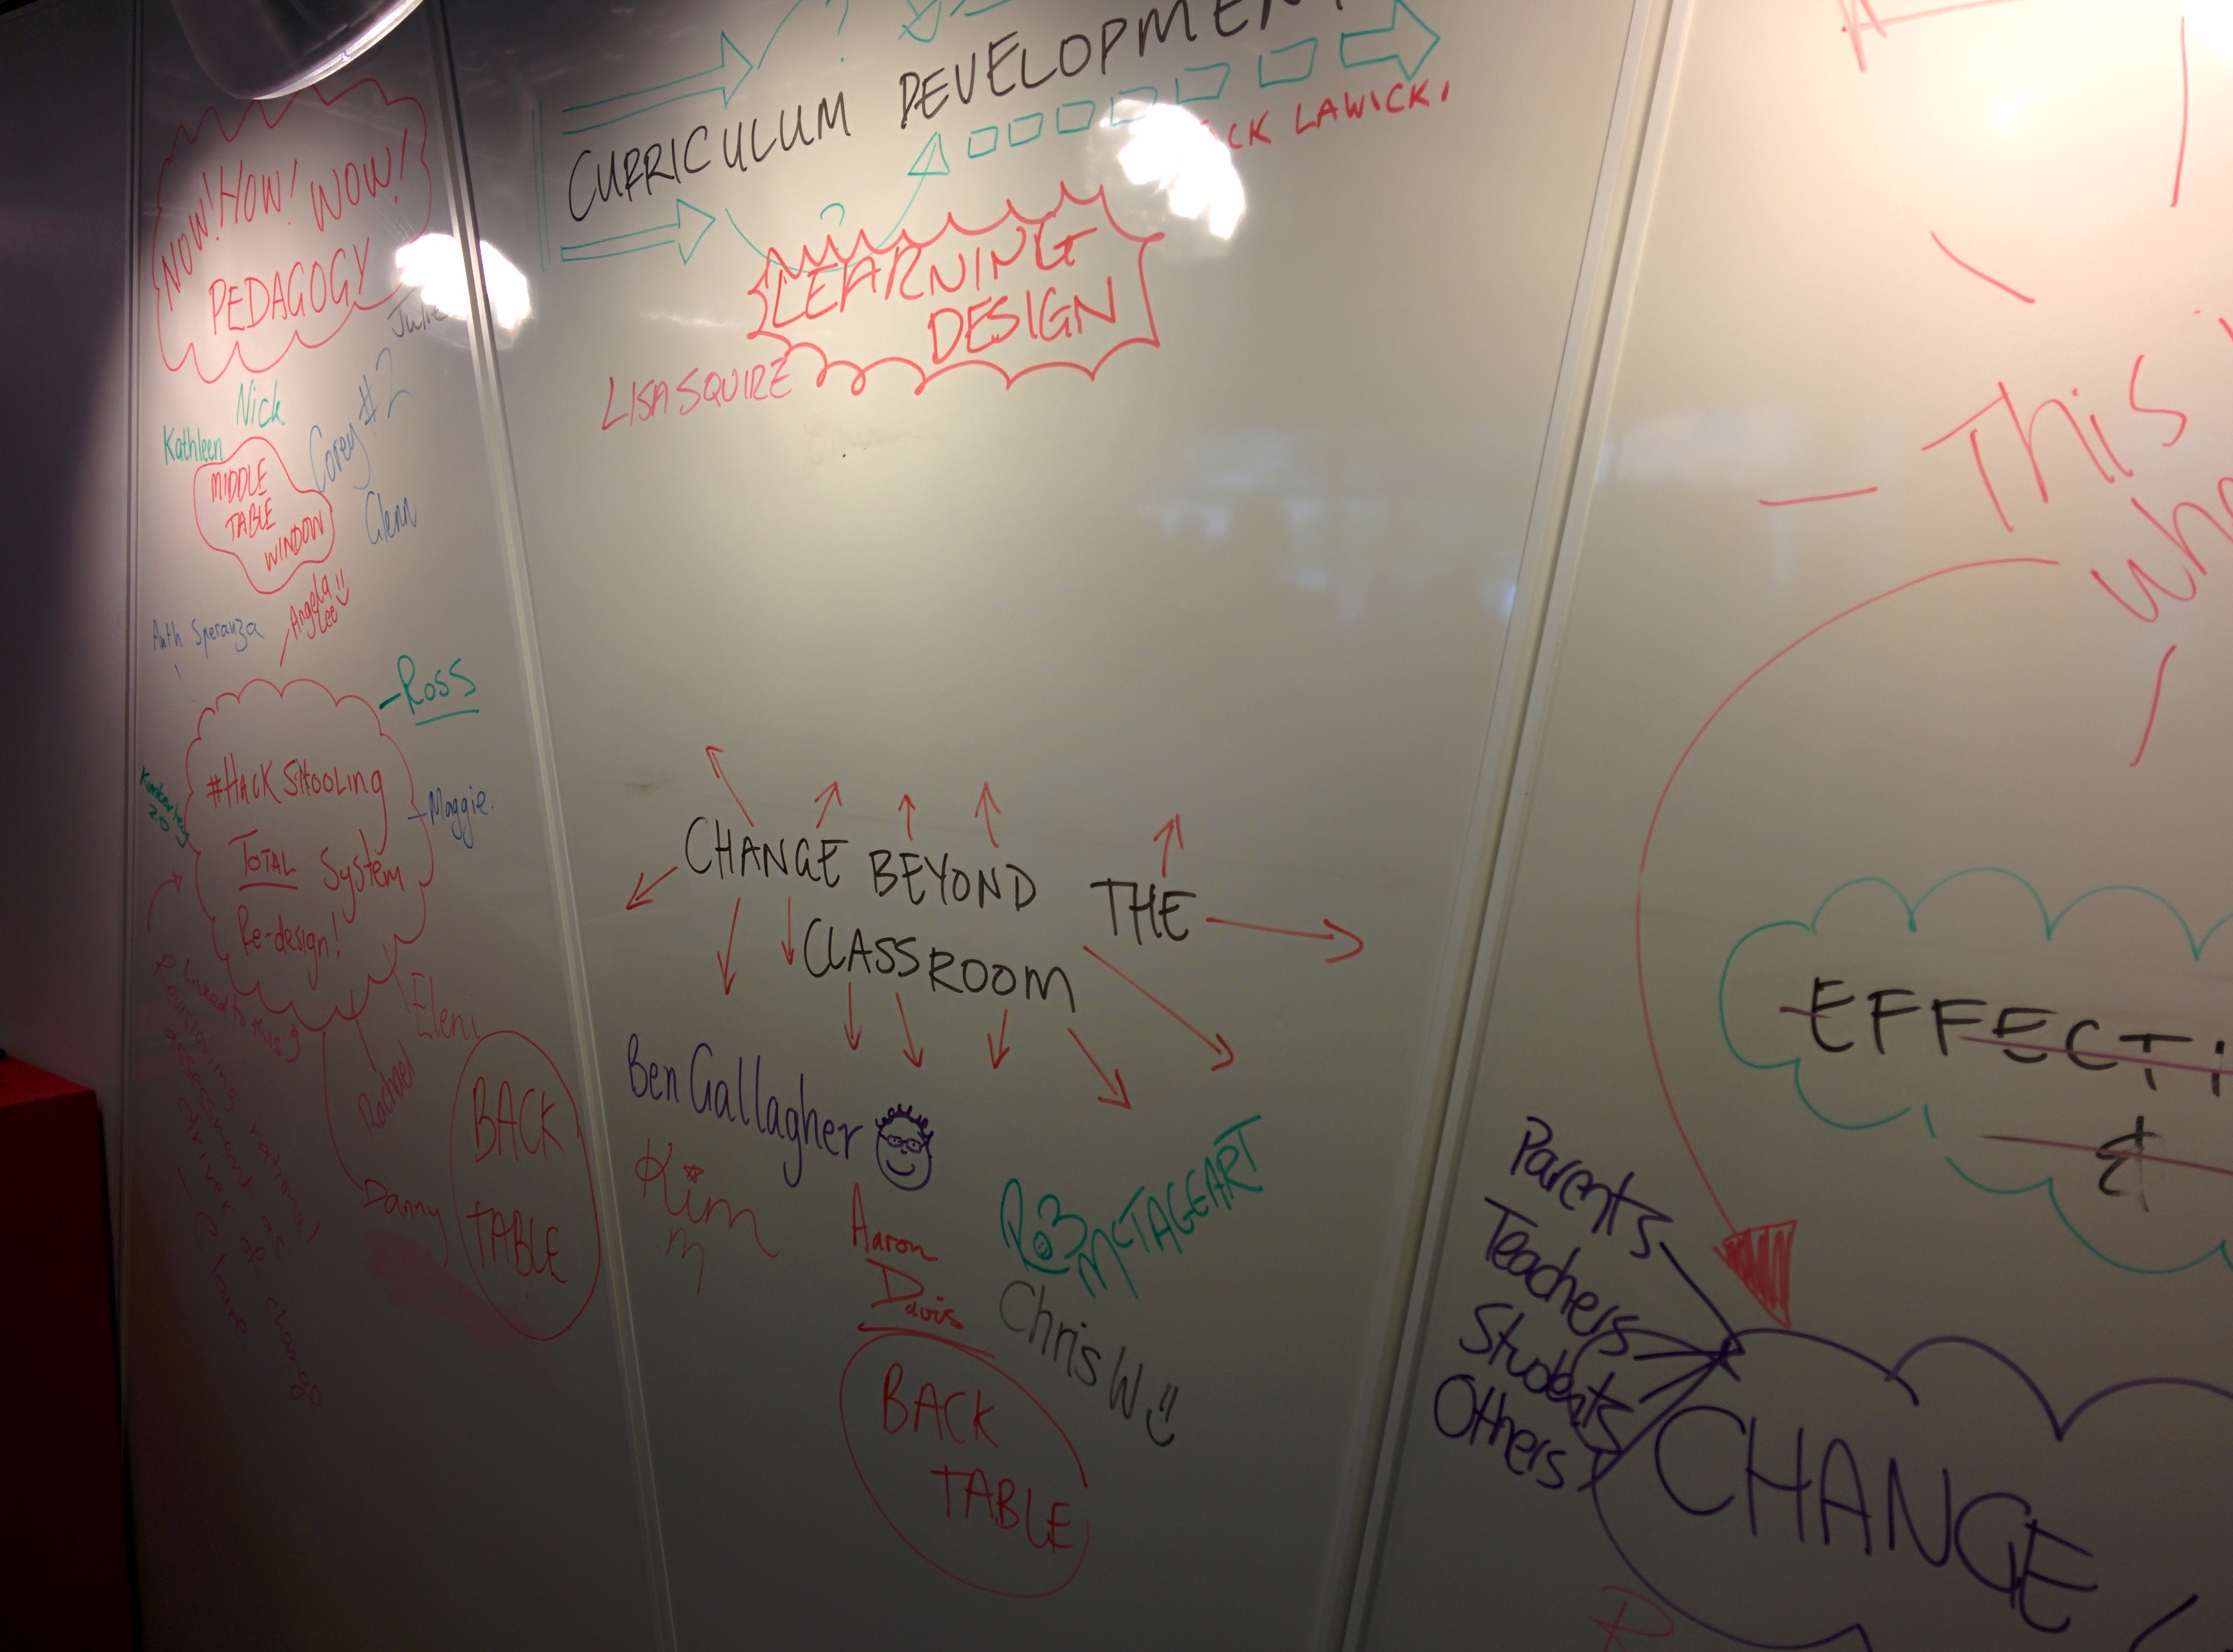 NOW! HOW! WOW!
PEDAGOGY
Julie
Nick
Kathleen
Corey #2
Glenn
MIDDLE
TABLE
WINDOW
Angela
Lee
Speranza
Ross
#HACK SHOOLING
TOTAL System
Re-design!
Kimberley
2.0
Maggie.
Eleni
Rachael
Danny
BACK
TABLE
R Linked to this?
removing national
assessment as
driver of change
CURRICULUM DEVELOPMENT
?
?
CK LAWICKI
LEARNING
DESIGN
LISA SQUIRE
CHANGE BEYOND THE
CLASSROOM
Ben Gallagher
Kim
m
Aaron
Davis
ROB
MCTAGGART
Chris W
BACK
TABLE
This
whe
EFFECTI
&
Parents
Teachers
Students
Others
CHANGE
R